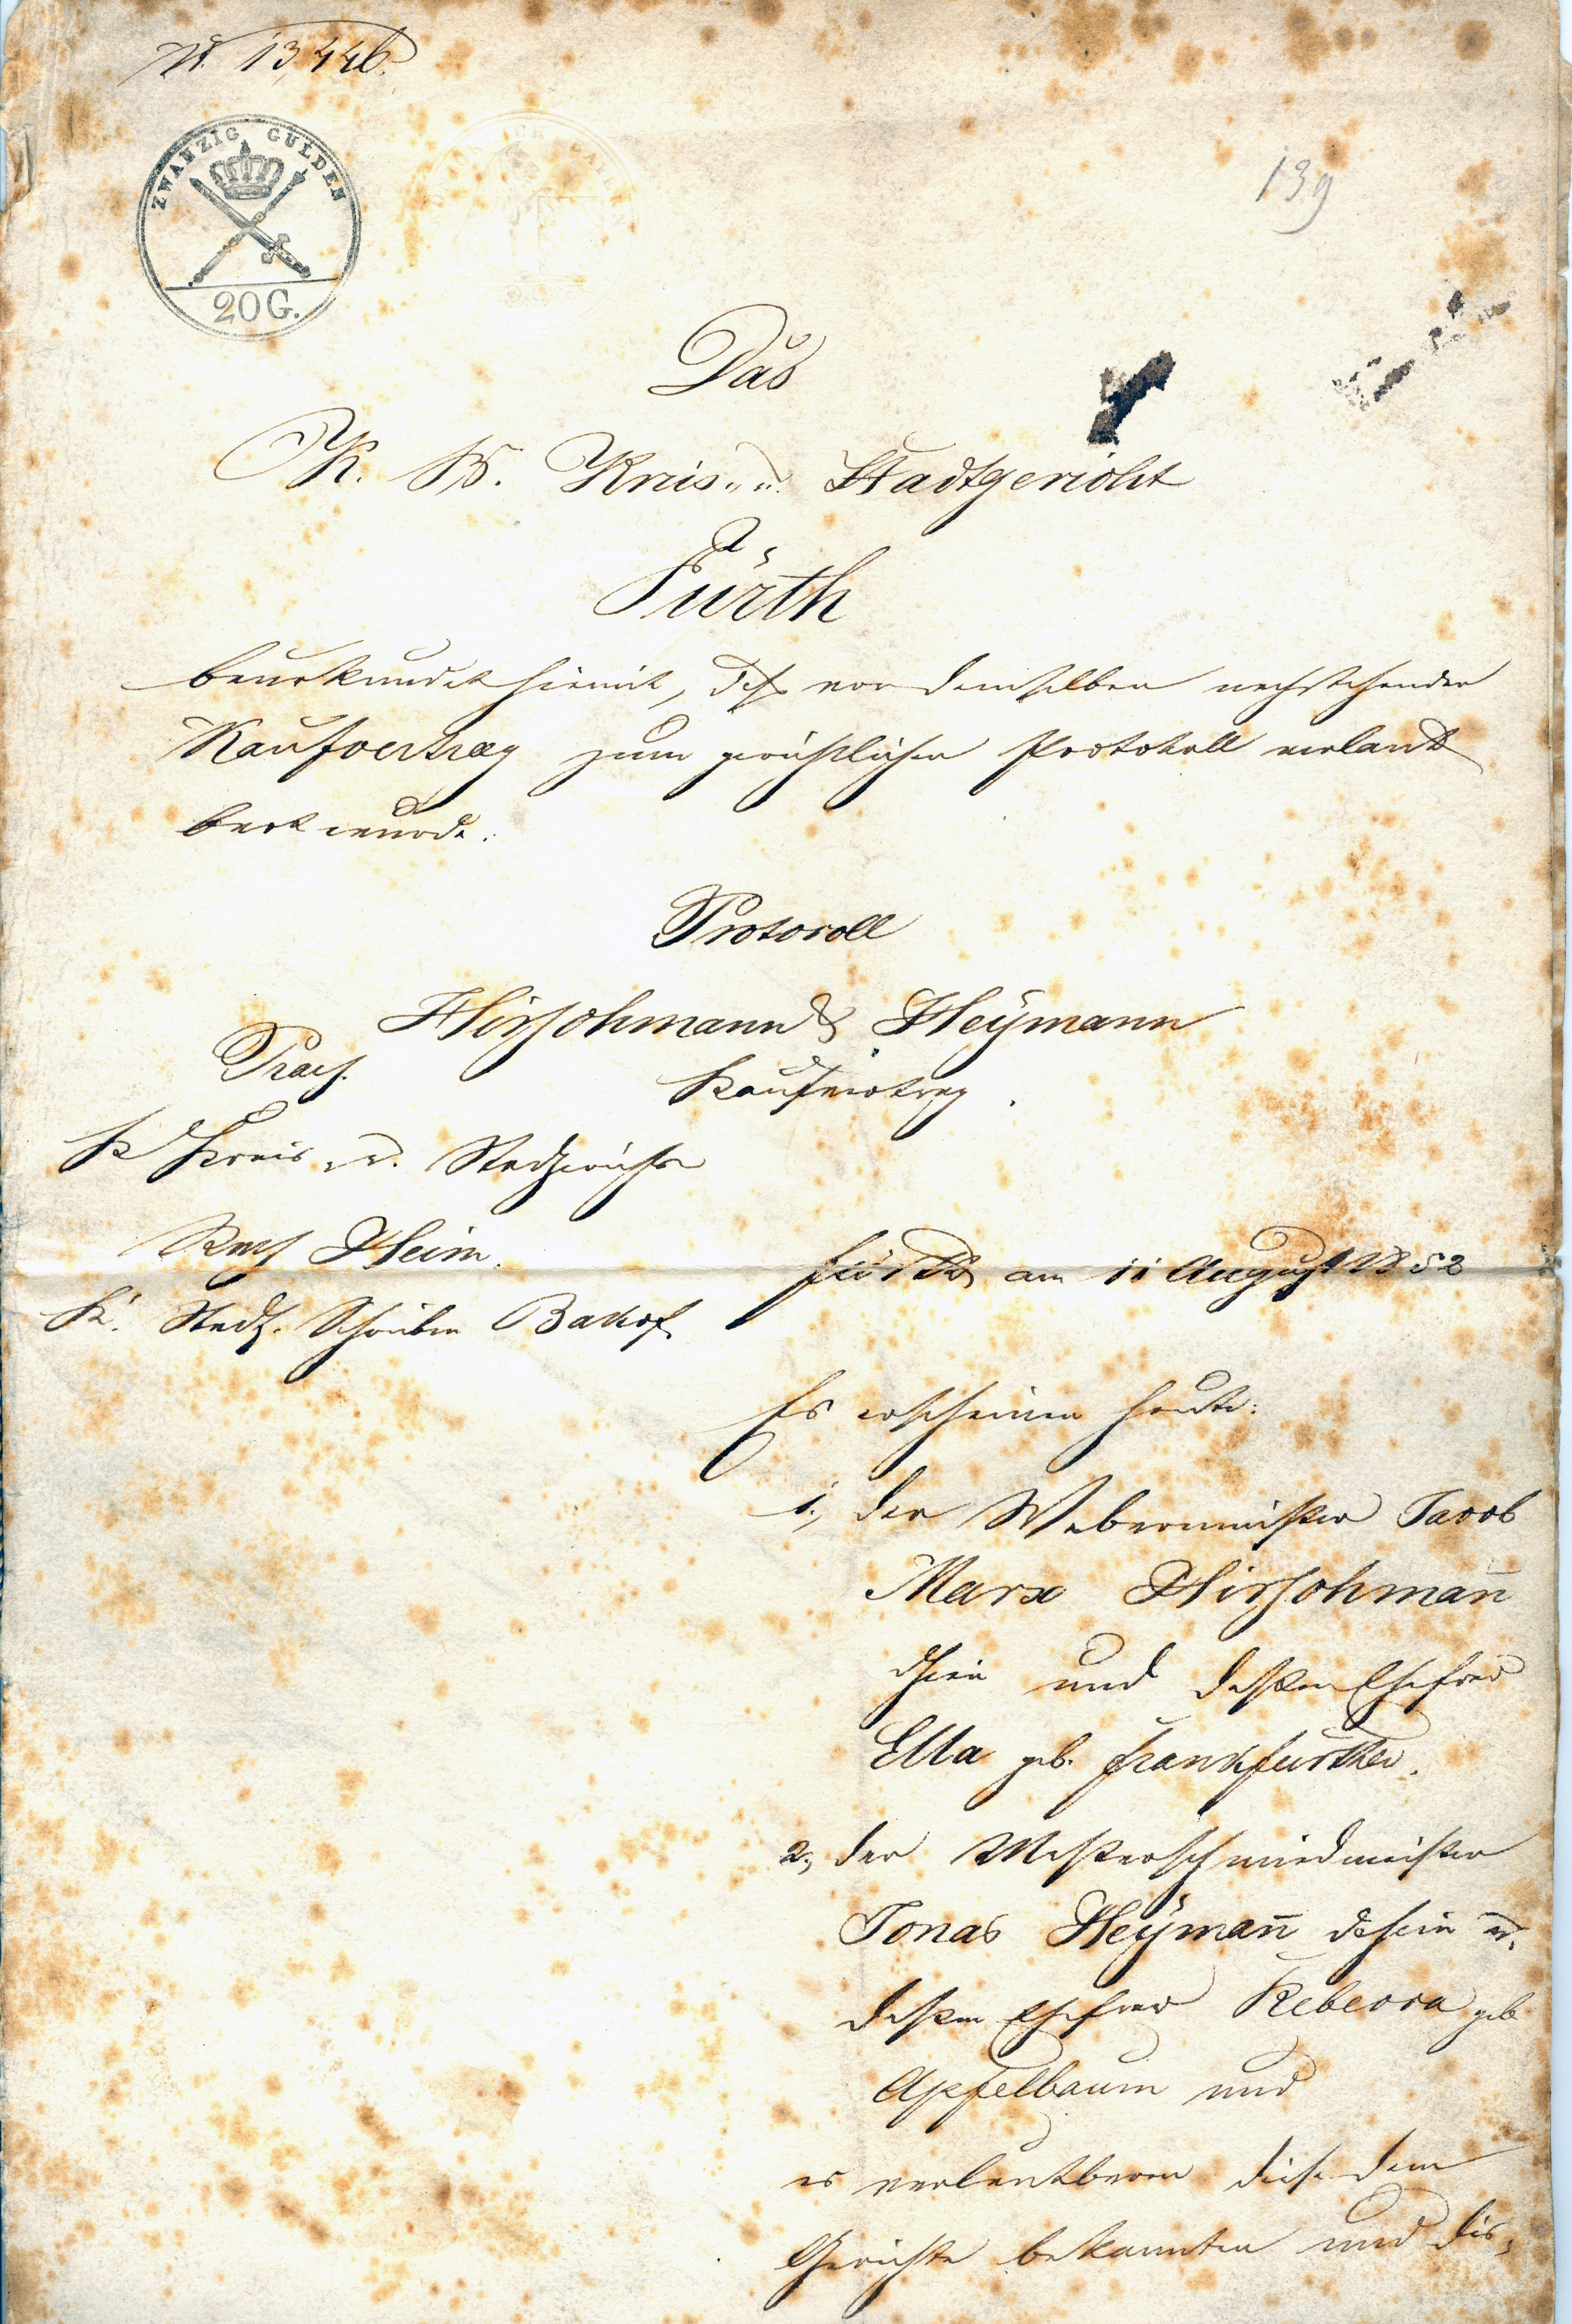 N. 13,446.
ZWANZIG GULDEN
20 G.
139
Das
K. B. Kreis- u. Stadtgericht
Fürth
beurkundet hiemit, daß vor demselben nachstehender
Kaufvertrag zum gerichtlichen Protokoll verlaut
bart wurde:
Protocoll
Hirschmann & Heymann
Praes.
Kaufvertrag.
K. Kreis- u. Stadtgerichts
Heim.
Fürth am 11 August 1852
K. Stadtg. Schreiber
Es erscheinen heute:
1., der Webermeister Jacob
Marx Hirschman̄
dahier und deßen Ehefrau
Ella geb. Frankfurther.
2., der Messerschmiedmeister
Jonas Heyman̄ dahier u.
deßen Ehefrau Rebecca geb
Apfelbaum und
es verlautbaren diese dem
Gerichte bekannten und dis-